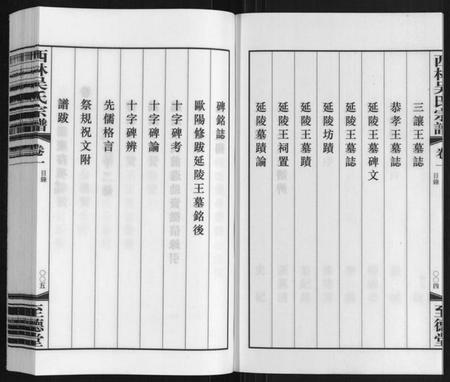 西林吳氏宗譜
卷一
目錄
〇〇四
至德堂
三讓王墓誌
恭孝王墓誌
延陵王墓碑文
延陵王墓誌
延陵坊蹟
延陵墓蹟
延陵王祠置
延陵墓蹟論
碑銘誌
歐陽修跋延陵王墓銘後
十字碑考
十字碑論
十字碑辨
先儒格言
祭規祝文附
譜跋
西林吳氏宗譜
卷一
目錄
〇〇五
至德堂